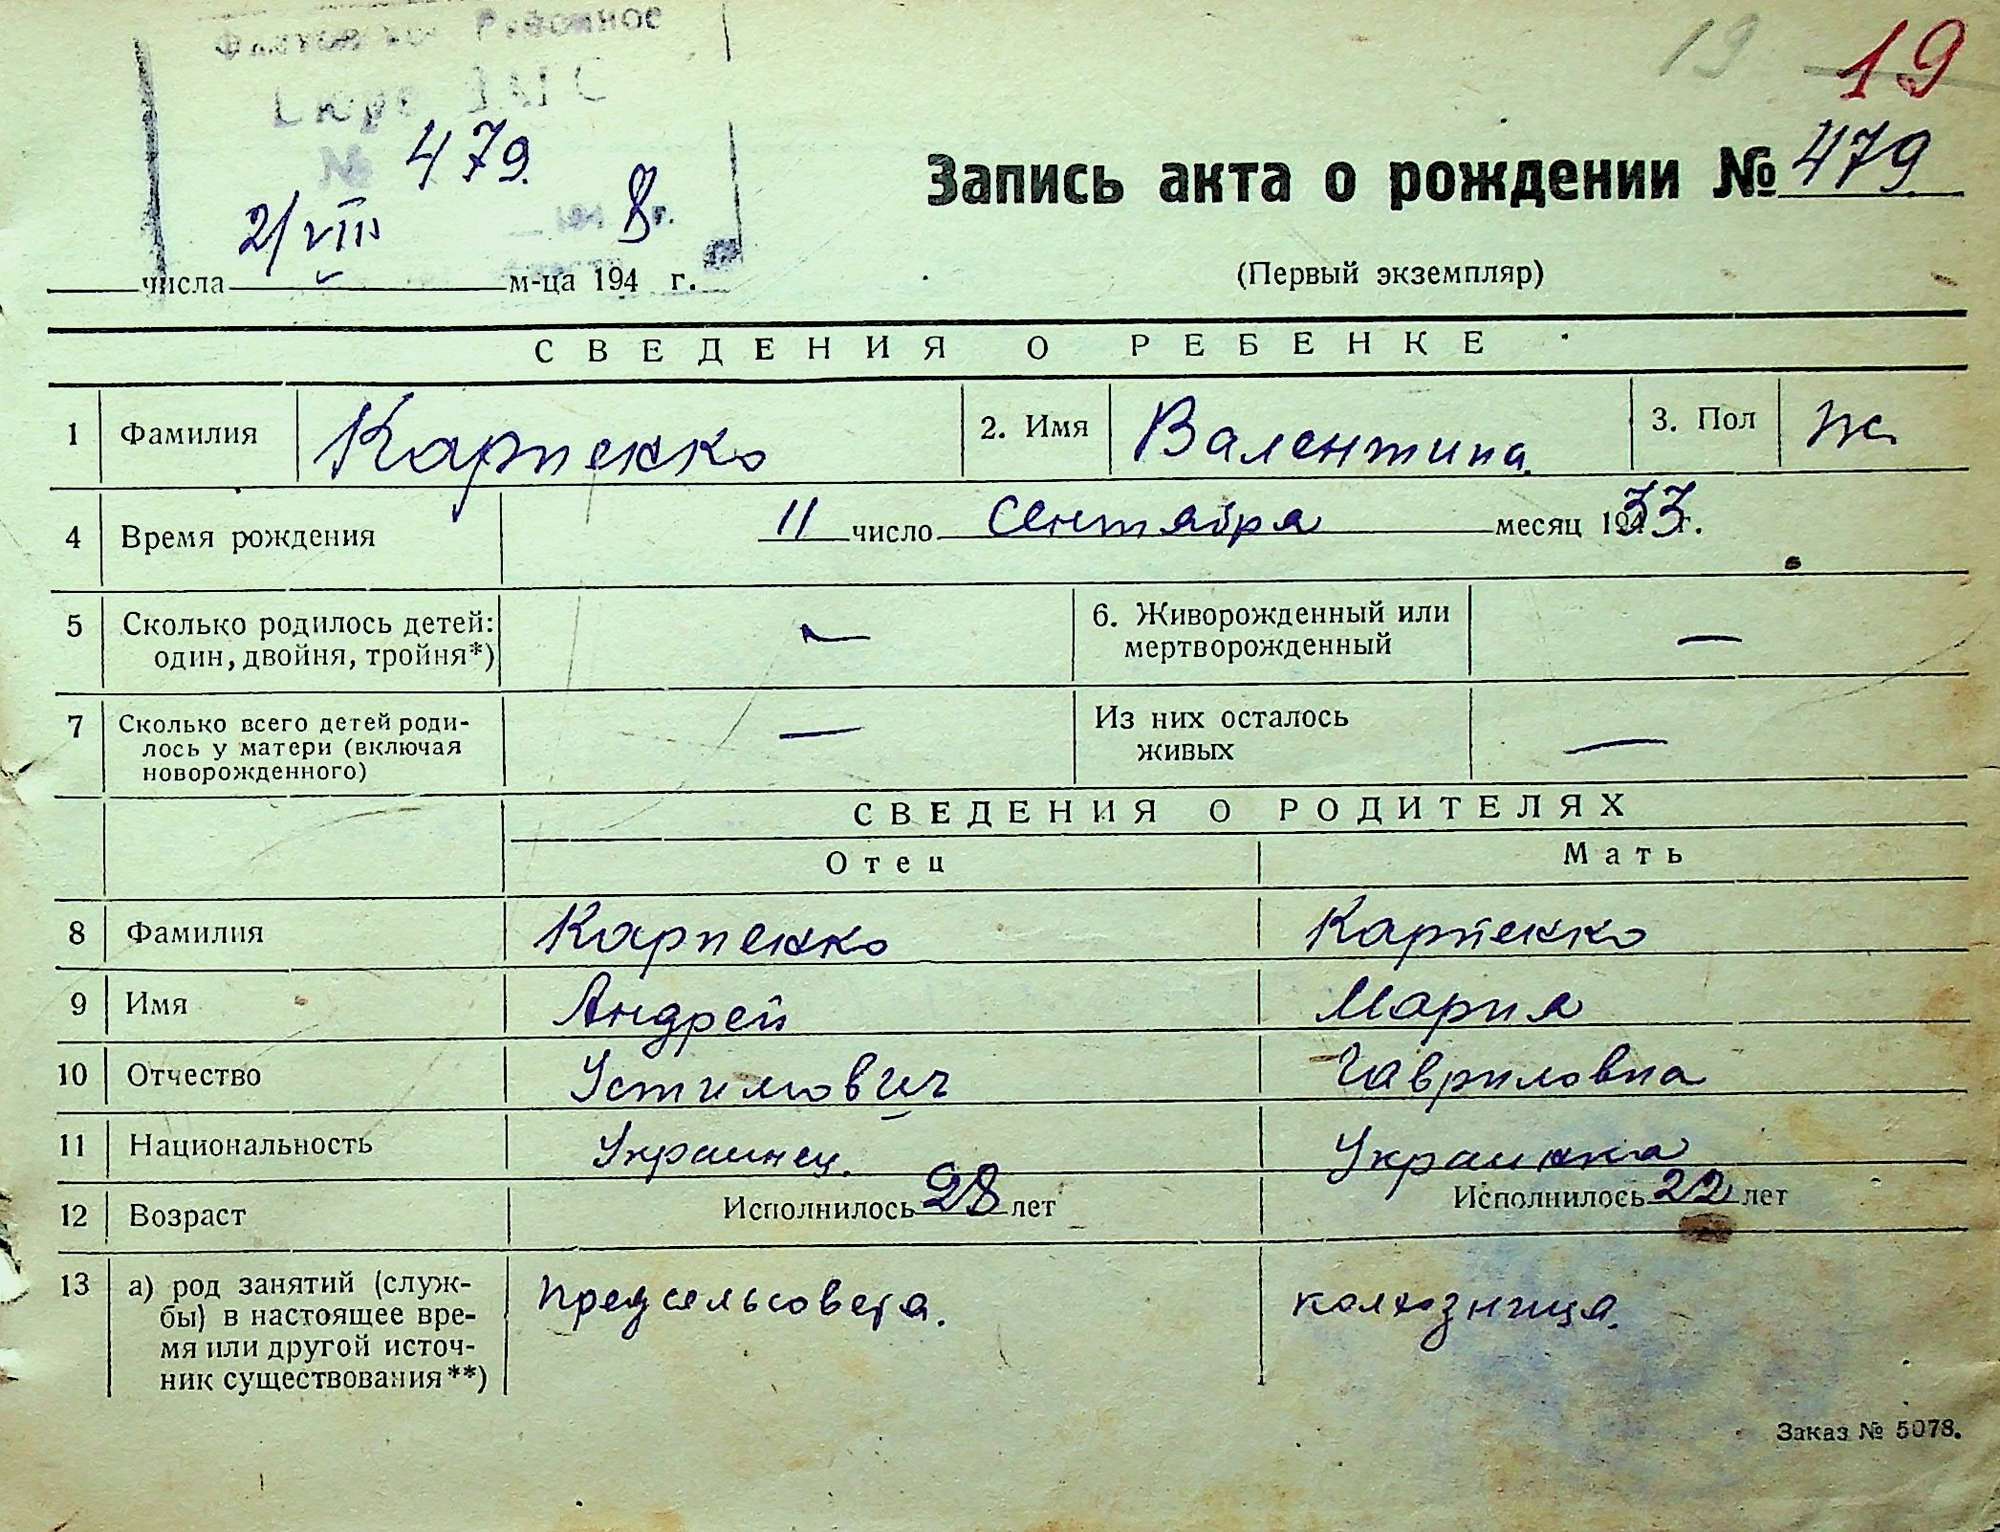 19 19
Районное
Бюро ЗАГС
№ 479
2/VIII 194 8 г.
Запись акта о рождении № 479
числа м-ца 194 г.
(Первый экземпляр)
СВЕДЕНИЯ О РЕБЕНКЕ
1 Фамилия Карпенко 2. Имя Валентина 3. Пол ж.
4 Время рождения 11 число Сентября месяц 1933 г.
5 Сколько родилось детей: — 6. Живорожденный или —
один, двойня, тройня*) мертворожденный
7 Сколько всего детей роди- — Из них осталось —
лось у матери (включая живых
новорожденного)
СВЕДЕНИЯ О РОДИТЕЛЯХ
Отец Мать
8 Фамилия Карпенко Карпенко
9 Имя Андрей Мария
10 Отчество Устимович Гавриловна
11 Национальность Украинец. Украинка
12 Возраст Исполнилось 28 лет Исполнилось 22 лет
13 а) род занятий (служ- предсельсовета. колхозница.
бы) в настоящее вре-
мя или другой источ-
ник существования**)
Заказ № 5078.